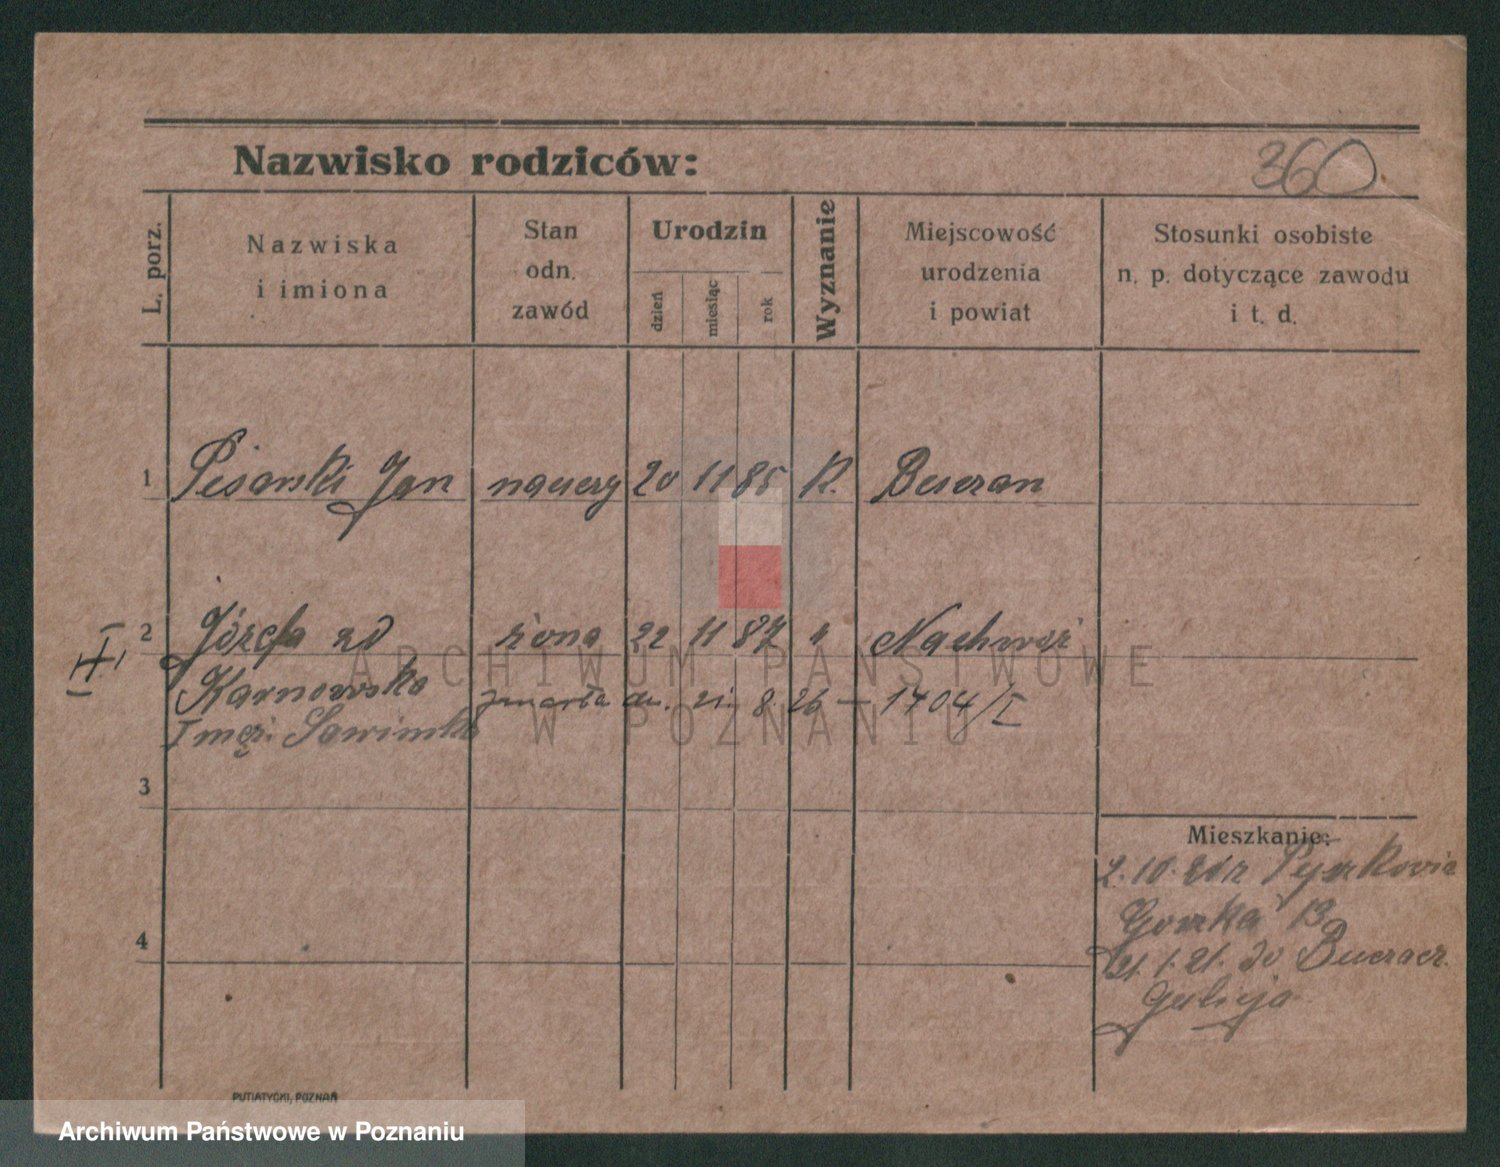 360
Nazwisko rodziców:
L. porz.
Nazwiska
i imiona
Stan
odn.
zawód
Urodzin
dzień
miesiąc
rok
Wyznanie
Miejscowość
urodzenia
i powiat
Stosunki osobiste
n. p. dotyczące zawodu
i t. d.
1 Pisarski Jan 20 11 85 K.
2 Józefa zd żona 22 11 87 "
Karnowska zmarła dn. 21. 8. 26 – 1704/I
I męż.
3
4
Mieszkanie:
2. 10.
Gorzka 13
21. 20 Buczacz
Galicja
PUTIATYCKI, POZNAŃ
ARCHIWUM PAŃSTWOWE
W POZNANIU
Archiwum Państwowe w Poznaniu